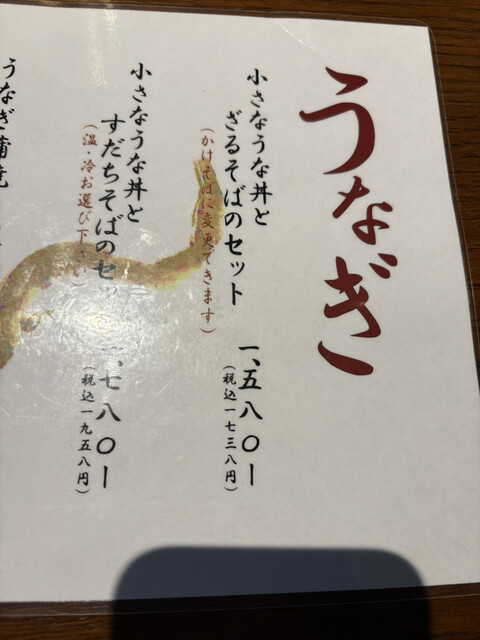 うなぎ
小さなうな丼と
ざるそばのセット
(かけそばに変更できます)
一、五八〇ー
(税込一七三八円)
小さなうな丼と
すだちそばのセッ
(温・冷お選び下さい)
一、七八〇ー
(税込一九五八円)
うなぎ蒲焼